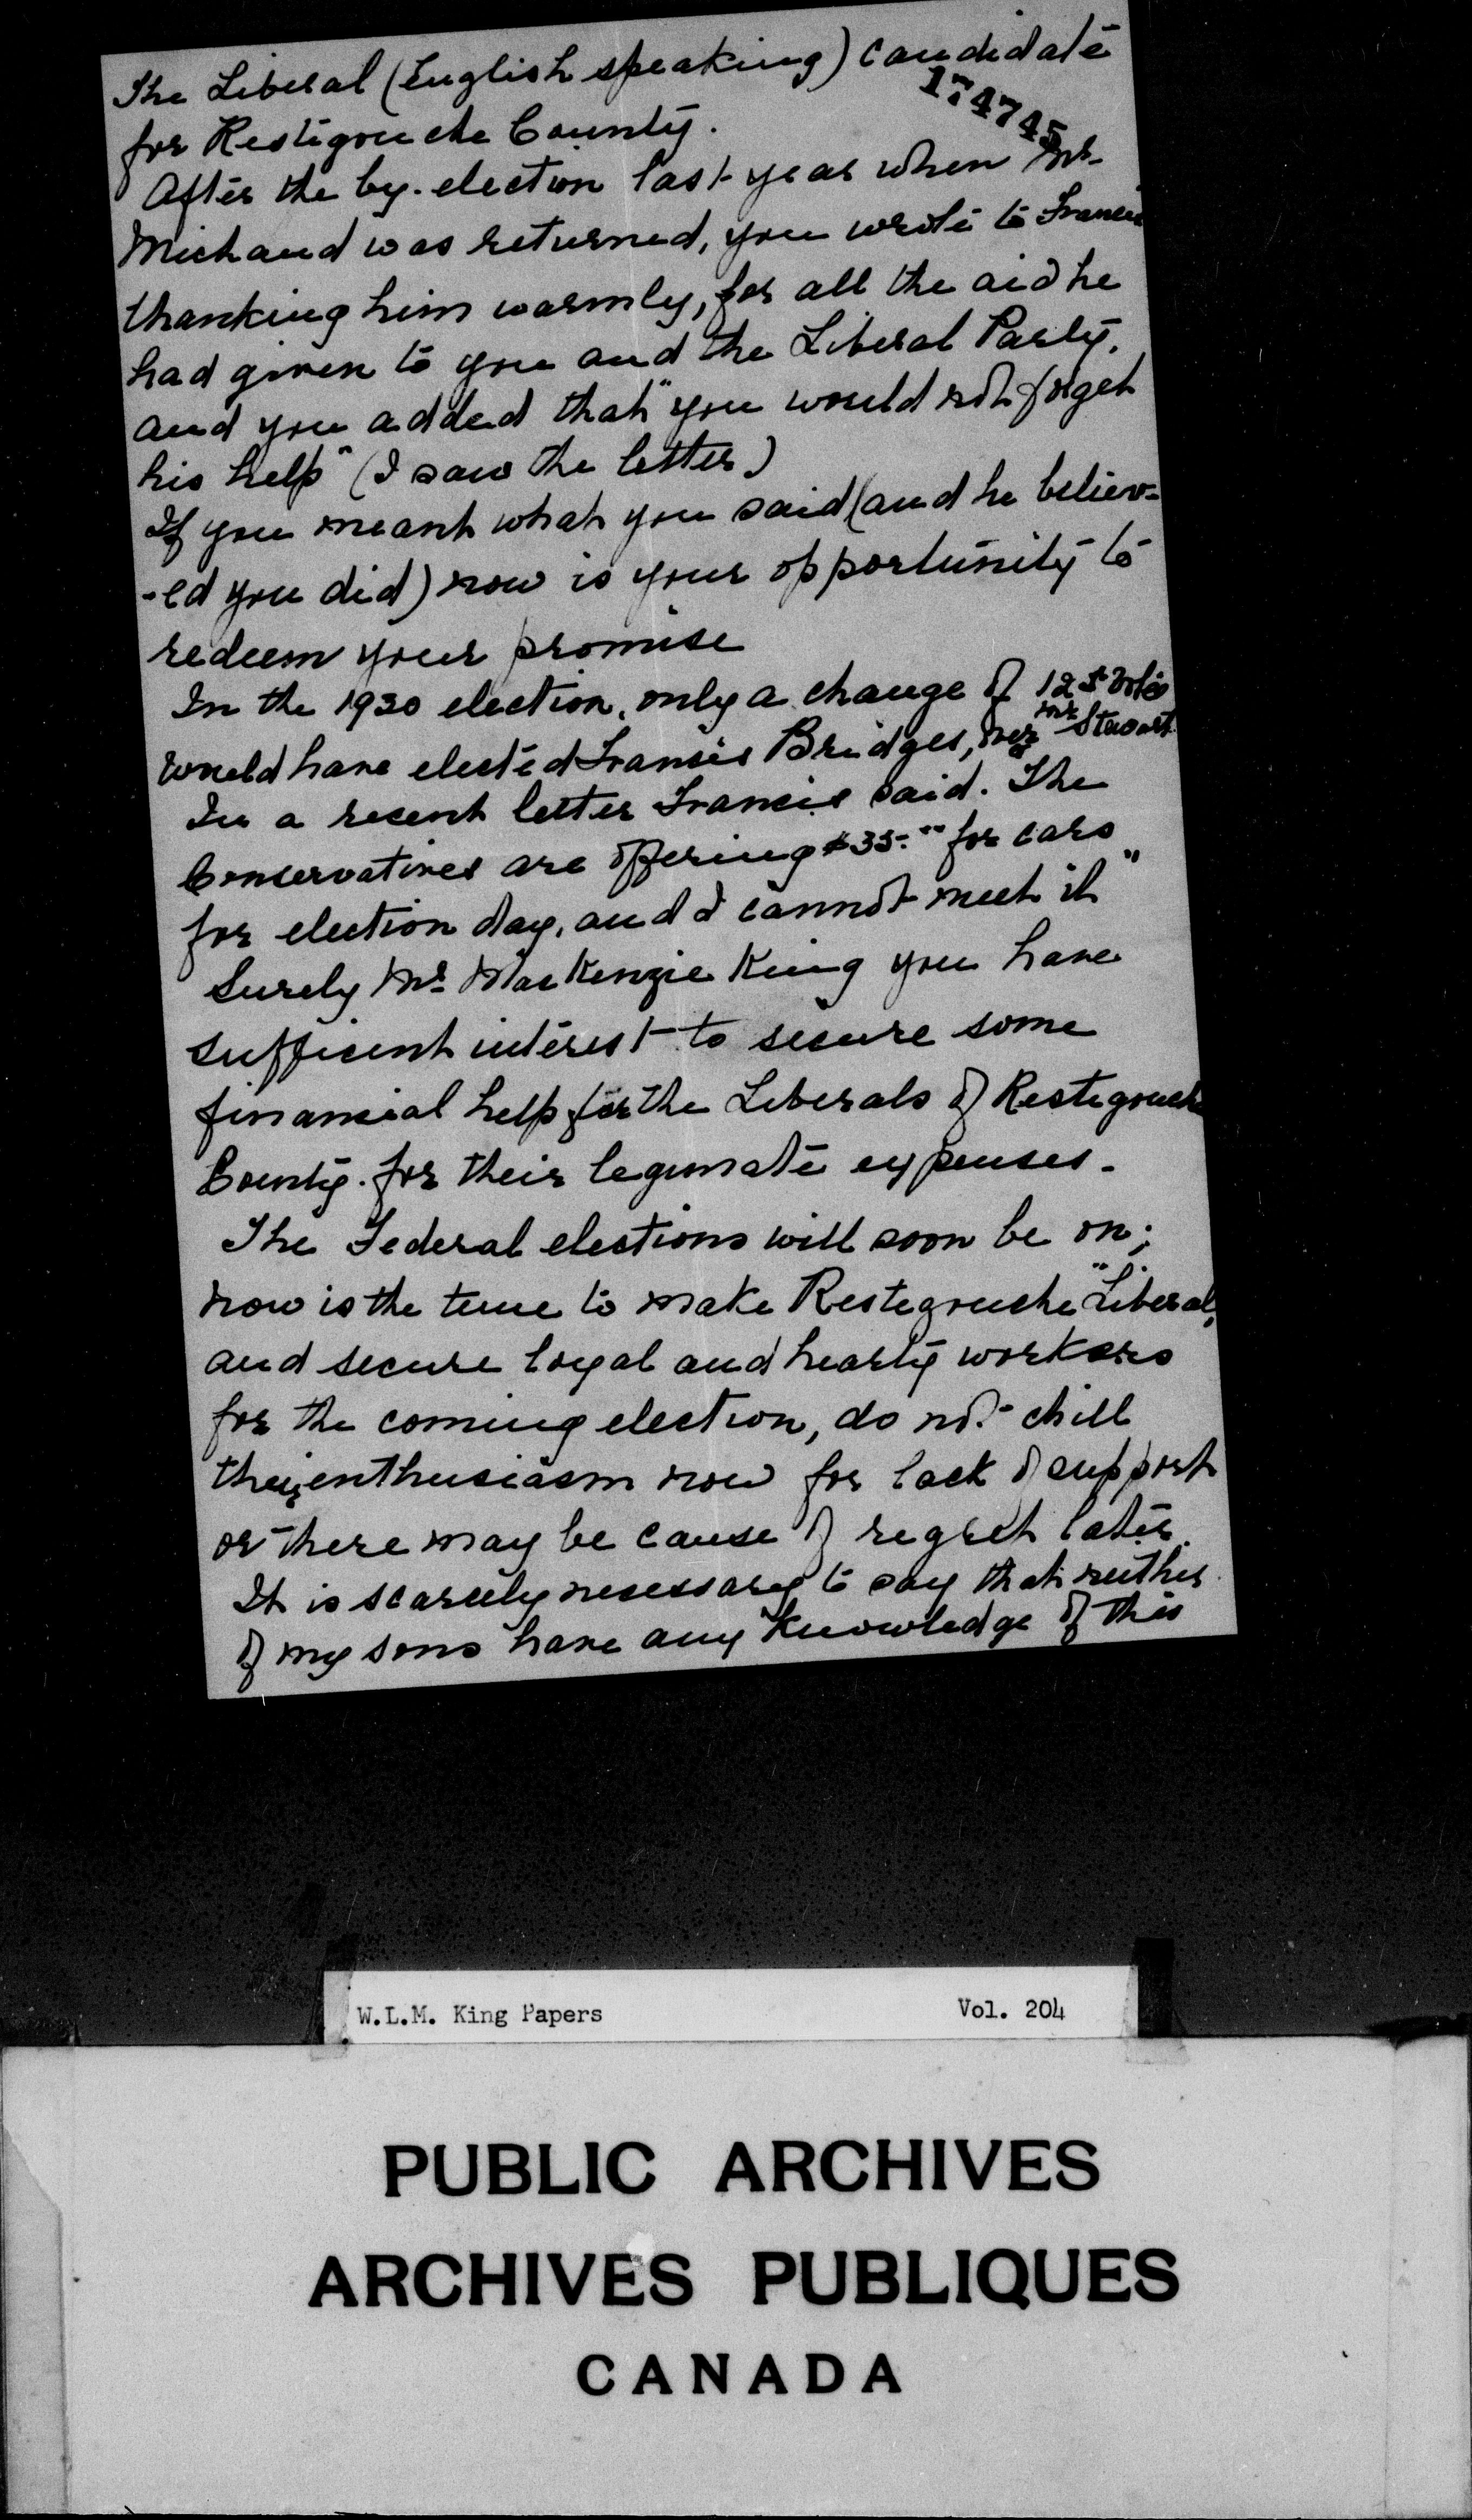 The Liberal (English speaking) candidate
174745
for Restigouche County.
After the by-election last year when Mr.
Michaud was returned, you wrote to Francis
thanking him warmly, for all the aid he
had given to you and the Liberal Party,
and you added that "you would not forget
his help" (I saw the letter)
If you meant what you said (and he believ-
-ed you did) now is your opportunity to
redeem your promise
In the 1930 election, only a change of votes
would have elected Francis Bridges, over Mr Stewart
In a recent letter Francis said. "The
Conservatives are offering $35.00 for cars
for election day, and I cannot meet it"
Surely Mr. MacKenzie King you have
sufficent interest to secure some
financial help for the Liberals of Restigouche
County. for their legimate expenses.
The Federal elections will soon be on;
now is the time to make Restegouche "Liberal,"
and secure loyal and hearty workers
for the coming election, do not chill
their enthusiasm now for lack of support
or there may be cause of regret later.
It is scarcely necessary to say that neither
of my sons have any knowledge of this
W.L.M. King Papers Vol. 204
PUBLIC ARCHIVES
ARCHIVES PUBLIQUES
CANADA